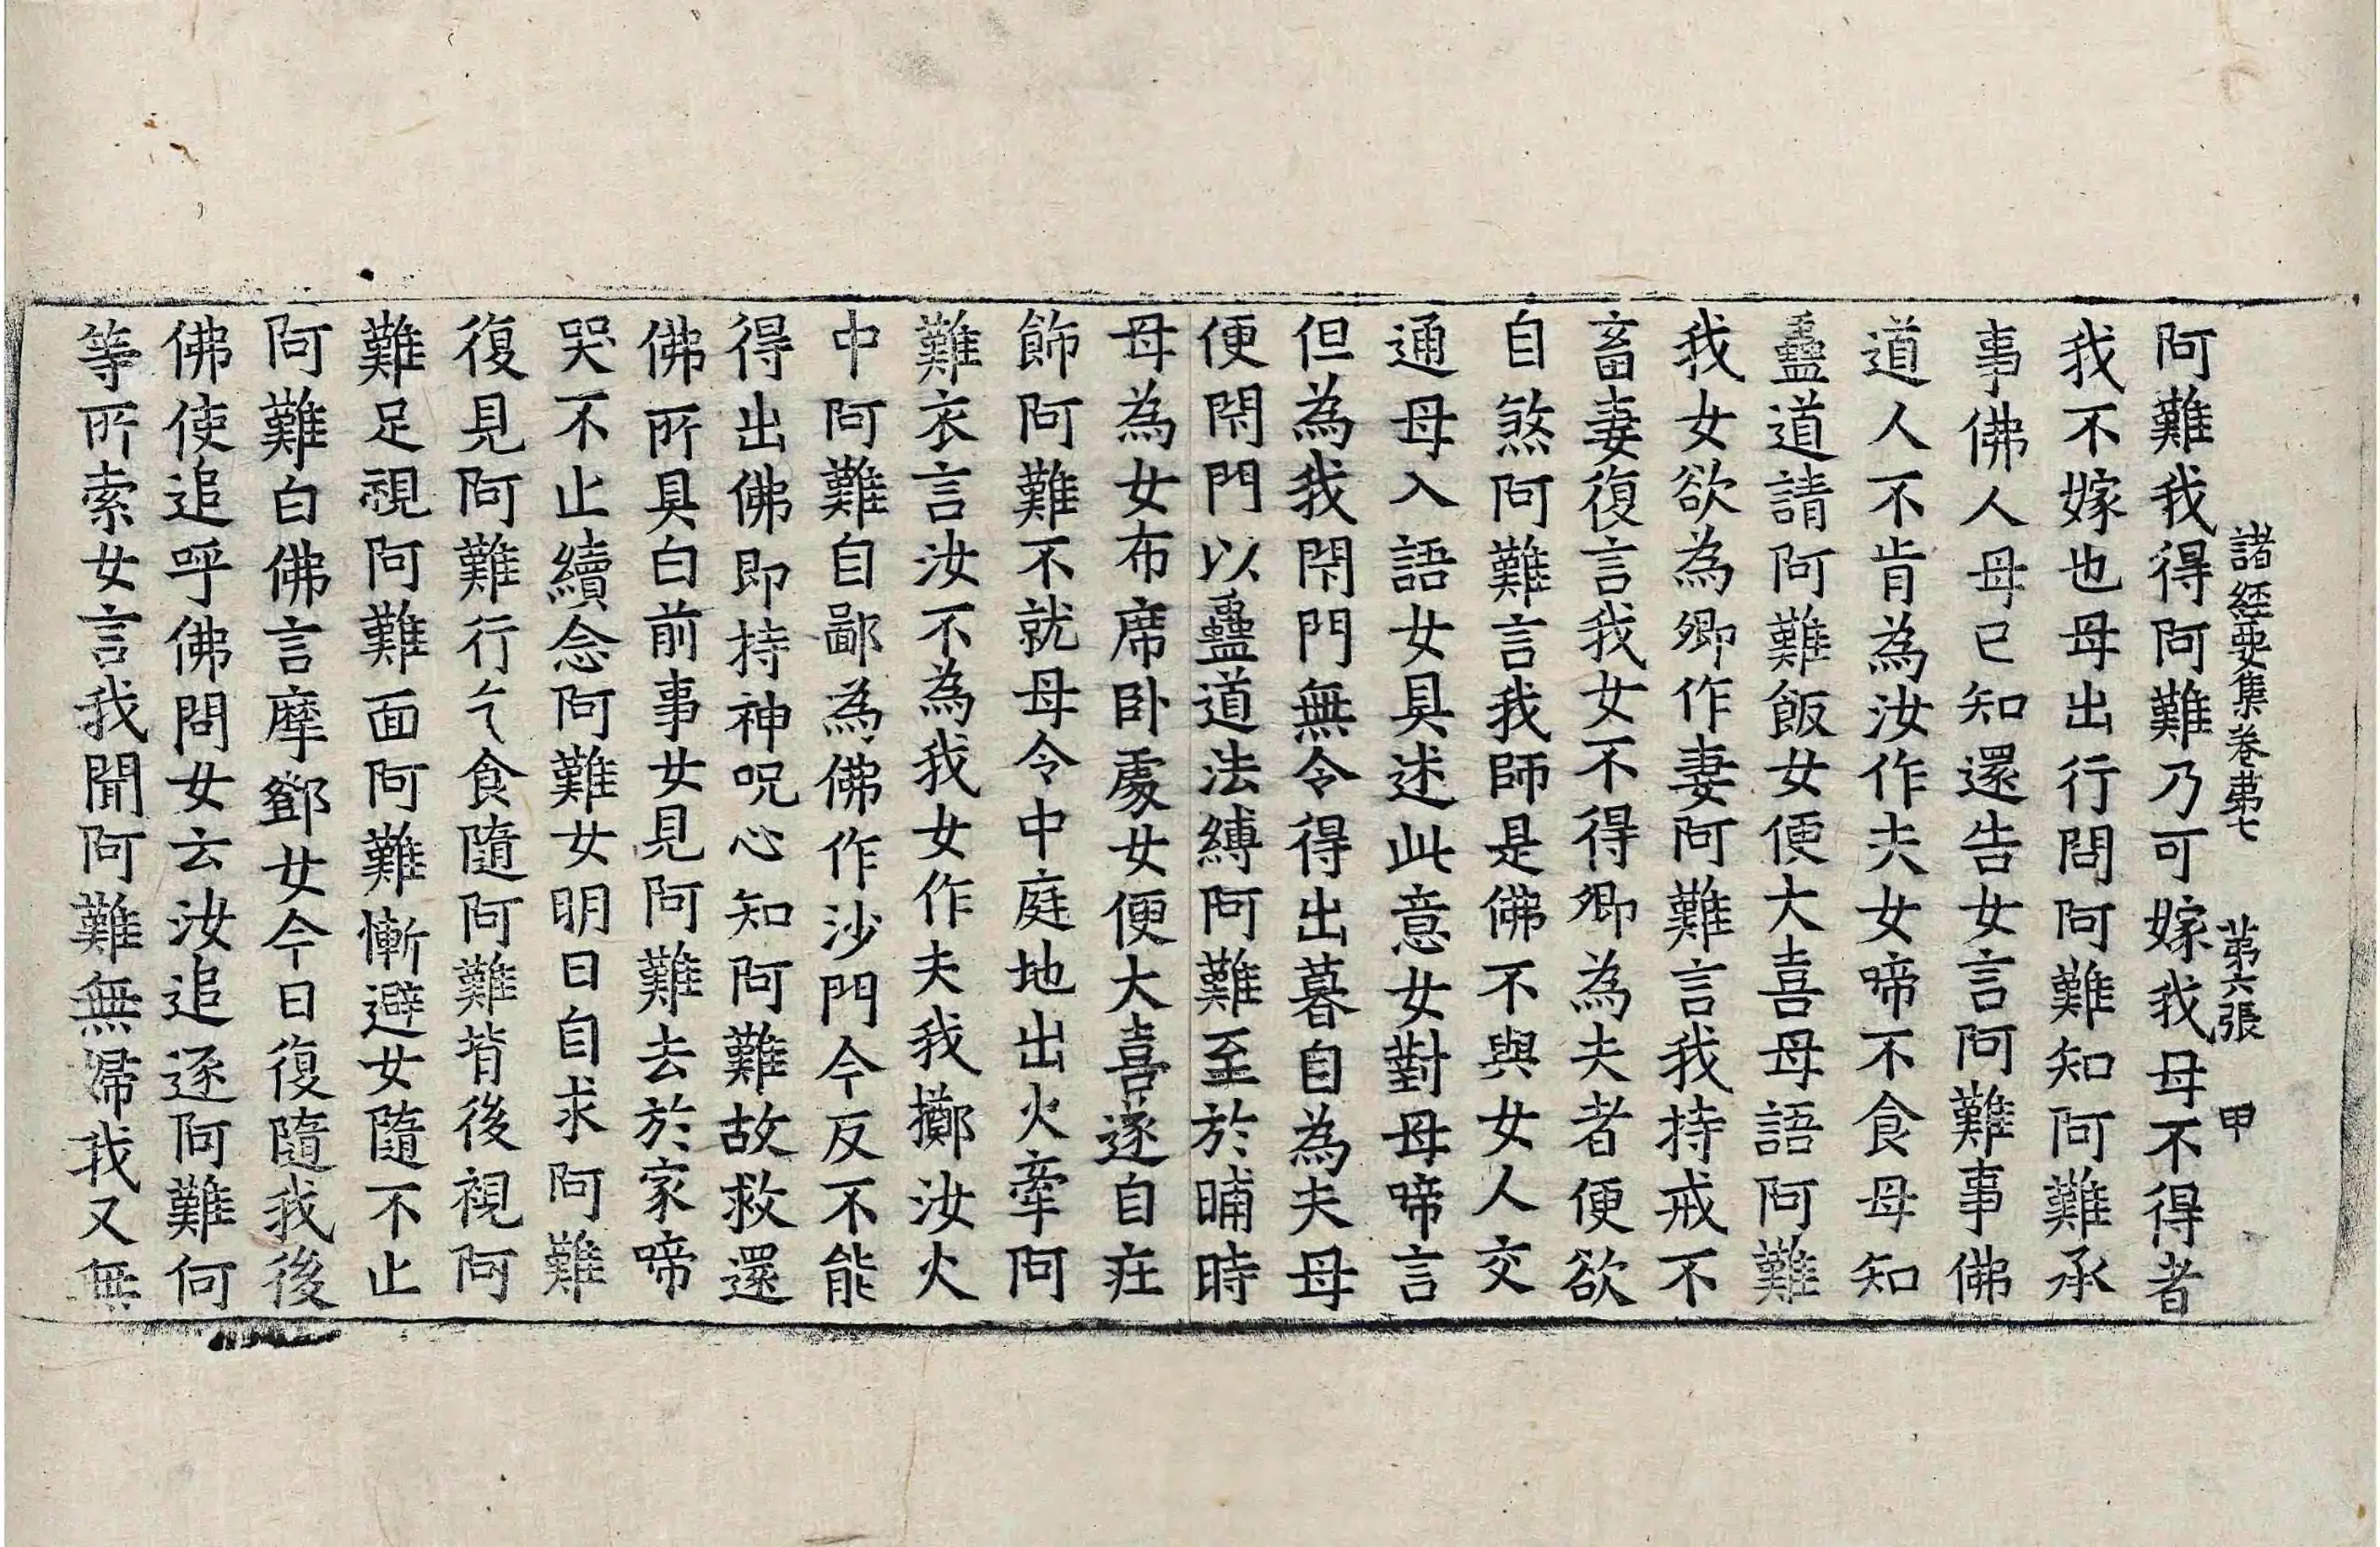 諸經要集卷苐七　苐六張　甲
阿難我得阿難乃可嫁我母不得者
我不嫁也母出行問阿難知阿難承
事佛人母已知還告女言阿難事佛
道人不肯為汝作夫女啼不食母知
蠱道請阿難飯女便大喜母語阿難
我女欲為卿作妻阿難言我持戒不
畜妻復言我女不得卿為夫者便欲
自煞阿難言我師是佛不與女人交
通母入語女具述此意女對母啼言
但為我閇門無令得出暮自為夫母
便閇門以蠱道法縛阿難至於晡時
母為女布席卧處女便大喜遂自莊
飾阿難不就母令中庭地出火牽阿
難衣言汝不為我女作夫我擲汝火
中阿難自鄙為佛作沙門今反不能
得出佛即持神呪心知阿難故救還
佛所具白前事女見阿難去於家啼
哭不止續念阿難女明日自求阿難
復見阿難行乞食隨阿難背後視阿
難足視阿難面阿難慚避女隨不止
阿難白佛言摩鄧女今日復隨我後
佛使追呼佛問女云汝追逐阿難何
等所索女言我聞阿難無婦我又無